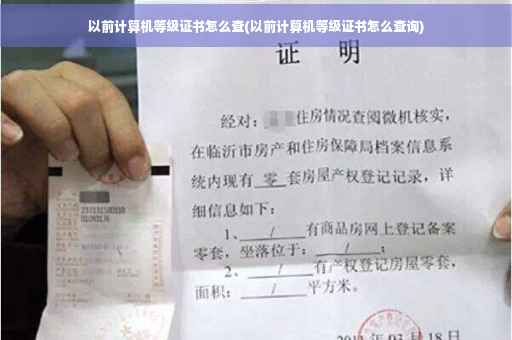 以前计算机等级证书怎么查(以前计算机等级证书怎么查询)
证 明
经对： 住房情况查阅微机核实，
在临沂市房产和住房保障局档案信息系
统内现有 零 套房屋产权登记记录，详
细信息如下：
1、 / 有商品房网上登记备案
零套，坐落位于： / ；
2、 / 有产权登记房屋零套，
面积： / 平方米。